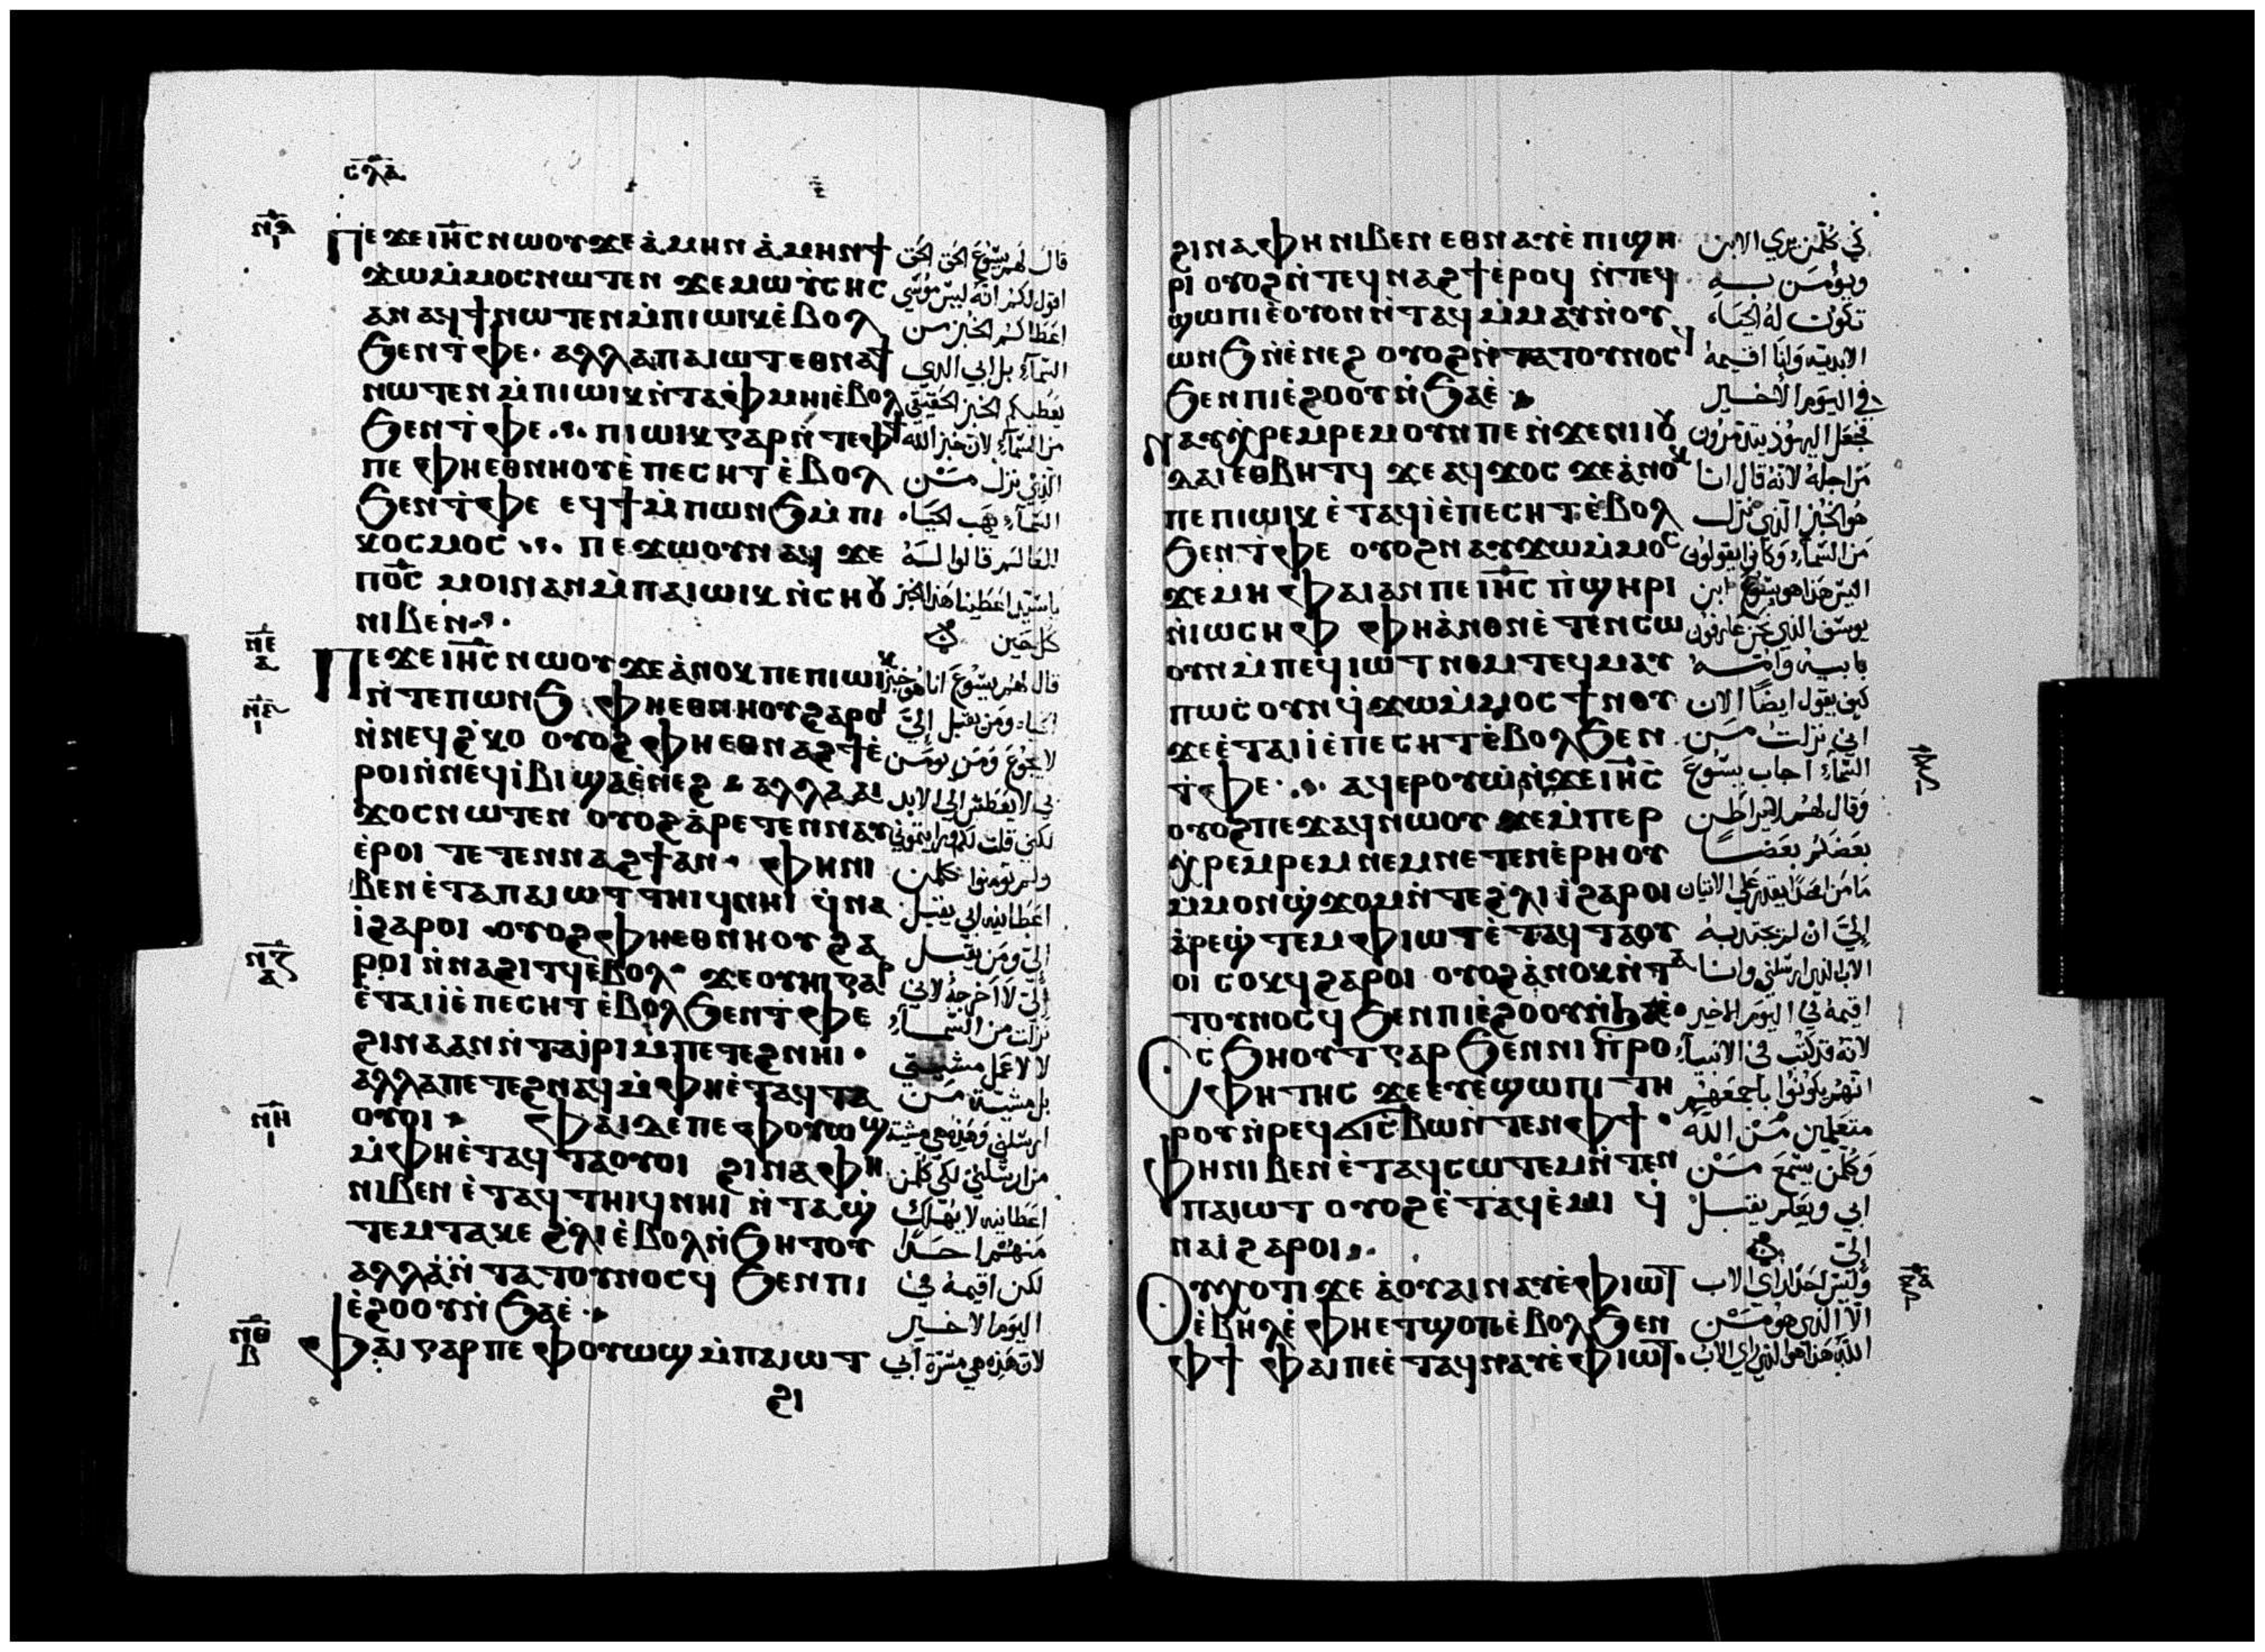 ⲥⲗⲁ
ⲡⲉϫⲉ ⲓⲏⲥ ⲛⲱⲟⲩ ϫⲉ ⲁ̀ⲙⲏⲛ ⲁ̀ⲙⲏⲛ ϯ
ϫⲱⲙ̀ⲙⲟⲥ ⲛⲱⲧⲉⲛ ϫⲉ ⲙⲱⲩ̀ⲥⲏⲥ
ⲁⲛ ⲁϥϯ ⲛⲱⲧⲉⲛ ⲙ̀ⲡⲓⲱⲓⲕ ⲉ̀ⲃⲟⲗ
ϧⲉⲛ ⲧ̀ⲫⲉ· ⲁⲗⲗⲁ ⲡⲁⲓⲱⲧ ⲉⲑⲛⲁϯ
ⲛⲱⲧⲉⲛ ⲙ̀ⲡⲓⲱⲓⲕ ⲛ̀ⲧⲁⲫ̀ⲙⲏⲓ ⲉ̀ⲃⲟⲗ
ϧⲉⲛ ⲧ̀ⲫⲉ ⲡⲓⲱⲓⲕ ⲅⲁⲣ ⲛ̀ⲧⲉ ⲫϯ
ⲡⲉ ⲫⲏⲉⲑⲛⲏⲟⲩ ⲉ̀ⲡⲉⲥⲏⲧ ⲉ̀ⲃⲟⲗ
ϧⲉⲛ ⲧ̀ⲫⲉ ⲉϥϯ ⲙ̀ⲡⲱⲛϧ ⲙ̀ⲡⲓ
ⲕⲟⲥⲙⲟⲥ ⲡⲉϫⲱⲟⲩ ⲛⲁϥ ϫⲉ
ⲡⲟ̅ⲥ̅ ⲙⲟⲓ ⲛⲁⲛ ⲙ̀ⲡⲁⲓⲱⲓⲕ ⲛ̀ⲥⲏⲟⲩ
ⲛⲓⲃⲉⲛ
ⲡⲉϫⲉ ⲓⲏⲥ ⲛⲱⲟⲩ ϫⲉ ⲁ̀ⲛⲟⲕ ⲡⲉ ⲡⲓⲱⲓⲕ
ⲛ̀ⲧⲉ ⲡⲱⲛϧ ⲫⲏⲉⲑⲛⲏⲟⲩ ϩⲁⲣⲟⲓ
ⲛ̀ⲛⲉϥϩ̀ⲕⲟ ⲟⲩⲟϩ ⲫⲏⲉⲑⲛⲁϩϯ ⲉ̀
ⲣⲟⲓ ⲛ̀ⲛⲉϥⲓ̀ⲃⲓ ϣⲁⲉ̀ⲛⲉϩ ⲁⲗⲗⲁ ⲁⲓ
ϫⲟⲥ ⲛⲱⲧⲉⲛ ⲟⲩⲟϩ ⲁ̀ⲣⲉⲧⲉⲛⲛⲁⲩ
ⲉ̀ⲣⲟⲓ ⲧⲉⲧⲉⲛⲛⲁϩϯ ⲁⲛ· ⲫⲏ ⲛⲓ
ⲃⲉⲛ ⲉ̀ⲧⲁ ⲡⲁⲓⲱⲧ ⲧⲏⲓϥ ⲛⲏⲓ ϥ̀ⲛⲁ
ⲓ̀ ϩⲁⲣⲟⲓ ·ⲟⲩⲟϩ ⲫⲏⲉⲑⲛⲏⲟⲩ ϩⲁ
ⲣⲟⲓ ⲛ̀ⲛⲁϩⲓⲧϥ ⲉ̀ⲃⲟⲗ· ϫⲉ ⲟⲩⲏⲓ ⲅⲁⲣ
ⲉ̀ⲧⲁⲓⲓ̀ ⲉ̀ⲡⲉⲥⲏⲧ ⲉ̀ⲃⲟⲗ ϧⲉⲛ ⲧ̀ⲫⲉ
ϩⲓⲛⲁ ⲁⲛ ⲛ̀ⲧⲁⲓ̀ⲣⲓ ⲙ̀ⲡⲉⲧⲉϩⲛⲏⲓ·
ⲁⲗⲗⲁ ⲡⲉⲧⲉϩⲛⲁϥ ⲙ̀ⲫⲏⲉ̀ⲧⲁϥⲧⲁ
ⲟⲩⲟⲓ ⲫⲁⲓ ⲇⲉ ⲡⲉ ⲫⲟⲩⲱϣ
ⲙ̀ⲫⲏⲉ̀ⲧⲁϥⲧⲁⲟⲩⲟⲓ ϩⲓⲛⲁ ⲫⲏ
ⲛⲓⲃⲉⲛ ⲉ̀ⲧⲁϥⲧⲏⲓϥ ⲛⲏⲓ ⲛ̀ⲧⲁϣ̀
ⲧⲉⲙⲧⲁⲕⲉ ϩ̀ⲗⲓ ⲉ̀ⲃⲟⲗ ⲛ̀ϧⲏⲧⲟⲩ
ⲁⲗⲗⲁ ⲛ̀ⲧⲁⲧⲟⲩⲛⲟⲥϥ ϧⲉⲛ ⲡⲓ
ⲉ̀ϩⲟⲟⲩ ⲛ̀ϧⲁⲉ̀
ⲫⲁⲓ ⲅⲁⲣ ⲡⲉ ⲫⲟⲩⲱϣ ⲙ̀ⲡⲁⲓⲱⲧ
ϩⲓ
قال لهم يسوع الحق الحق
اقول لكم انه ليس موسى
اعطاكم الخبز من
السماء بل ابي الذي
يعطيكم الخبز الحقيقي
من السماء لان خبز الله
الذي نزل من
السماء يهب الحياة
للعالم قالوا له
يا سيد اعطينا هذا الخبز
كل حين
قال لهم يسوع انا هو خبز
الحياة ومن يقبل إليّ
لا يجوع ومن يومن
بي لا يعطش الى الابد
لكني قلت لكم رايتموني
ولم تومنوا كلمن
اعطانيه ابي يقبل
إليّ ومن يقبل
إليّ لا اخرجه لاني
نزلت من السماء
لا لاعمل مشيتي
بل مشية من
ارسلني وهذه هي مشية
من ارسلني لكي كلمن
اعطانيه لا يهلك
منهم احدا
لكن اقيمه في
اليوم الاخير
لان هذه هي مسرة أبي
ϩⲓⲛⲁ ⲫⲏ ⲛⲓⲃⲉⲛ ⲉⲑⲛⲁⲩ ⲉ̀ⲡⲓϣⲏ
ⲣⲓ ⲟⲩⲟϩ ⲛ̀ⲧⲉϥⲛⲁϩϯ ⲉ̀ⲣⲟϥ ⲛ̀ⲧⲉϥ
ϣⲱⲡⲓ ⲉ̀ⲟⲩⲟⲛ ⲛ̀ⲧⲁϥ ⲙ̀ⲙⲁⲩ ⲛ̀ⲟⲩ
ⲱⲛϧ ⲛ̀ⲉ̀ⲛⲉϩ ⲟⲩⲟϩ ⲛ̀ⲧⲁⲧⲟⲩⲛⲟⲥϥ
ϧⲉⲛ ⲡⲓⲉ̀ϩⲟⲟⲩ ⲛ̀ϧⲁⲉ̀
ⲛⲁⲩⲭ̀ⲣⲉⲙⲣⲉⲙ ⲟⲩⲛ ⲡⲉ ⲛ̀ϫⲉ ⲛⲓⲓⲟⲩ
ⲇⲁⲓ ⲉⲑⲃⲏⲧϥ ϫⲉ ⲁϥϫⲟⲥ ϫⲉ ⲁ̀ⲛⲟⲕ
ⲡⲉ ⲡⲓⲱⲓⲕ ⲉ̀ⲧⲁϥⲓ̀ ⲉ̀ⲡⲉⲥⲏⲧ ⲉ̀ⲃⲟⲗ
ϧⲉⲛ ⲧ̀ⲫⲉ ⲟⲩⲟϩ ⲛⲁⲩϫⲱⲙ̀ⲙⲟⲥ
ϫⲉ ⲙⲏ ⲫⲁⲓ ⲁⲛ ⲡⲉ ⲓⲏⲥ ⲡ̀ϣⲏⲣⲓ
ⲛ̀ⲓⲱⲥⲏⲫ ⲫⲏⲁ̀ⲛⲟⲛ ⲉ̀ⲧⲉⲛⲥⲱ
ⲟⲩⲛ ⲙ̀ⲡⲉϥⲓⲱⲧ ⲛⲉⲙ ⲧⲉϥⲙⲁⲩ
ⲡⲱⲥ ⲟⲩⲛ ϥ̀ϫⲱⲙ̀ⲙⲟⲥ ϯⲛⲟⲩ
ϫⲉ ⲉ̀ⲧⲁⲓⲓ̀ ⲉ̀ⲡⲉⲥⲏⲧ ⲉ̀ⲃⲟⲗ ϧⲉⲛ
ⲧ̀ⲫⲉ ⲁϥⲉⲣⲟⲩⲱ̀ ⲛ̀ϫⲉ ⲓⲏⲥ
ⲟⲩⲟϩ ⲡⲉϫⲁϥ ⲛⲱⲟⲩ ϫⲉ ⲙ̀ⲡⲉⲣ
ⲭ̀ⲣⲉⲙⲣⲉⲙ ⲛⲉⲙ ⲛⲉⲧⲉⲛⲉ̀ⲣⲏⲟⲩ
ⲙ̀ⲙⲟⲛ ϣ̀ϫⲟⲙ ⲛ̀ⲧⲉ ϩ̀ⲗⲓ ⲓ̀ ϩⲁⲣⲟⲓ
ⲁ̀ⲣⲉϣ̀ⲧⲉⲙ ⲫⲓⲱⲧ ⲉ̀ⲧⲁϥⲧⲁⲟⲩ
ⲟⲓ ⲥⲟⲕϥ ϩⲁⲣⲟⲓ ⲟⲩⲟϩ ⲁ̀ⲛⲟⲕ ⲛ̀ⲧⲁ
ⲧⲟⲩⲛⲟⲥϥ ϧⲉⲛ ⲡⲓⲉ̀ϩⲟⲟⲩ ⲛ̀ϧⲁⲉ̀·
ⲥ̀ϧⲏⲟⲩⲧ ⲅⲁⲣ ϧⲉⲛ ⲛⲓⲡ̀ⲣⲟ
ⲫⲏⲧⲏⲥ ϫⲉ ⲉⲩⲉ̀ϣⲱⲡⲓ ⲧⲏ
ⲣⲟⲩ ⲛ̀ⲣⲉϥϭⲓⲥ̀ⲃⲱ ⲛ̀ⲧⲉⲛ ⲫϯ·
ⲫⲏ ⲛⲓⲃⲉⲛ ⲉ̀ⲧⲁϥⲥⲱⲧⲉⲙ ⲛ̀ⲧⲉⲛ
ⲡⲁⲓⲱⲧ ⲟⲩⲟϩ ⲉ̀ⲧⲁϥⲉ̀ⲙⲓ ϥ̀
ⲛⲁⲓ̀ ϩⲁⲣⲟⲓ
ⲟⲩⲭⲟⲧⲓ ϫⲉ ⲁ̀ ⲟⲩⲁⲓ ⲛⲁⲩ ⲉ̀ⲫⲓⲱⲧ
ⲉ̀ⲃⲏⲗ ⲉ̀ⲫⲏⲉⲧϣⲟⲡ ⲉ̀ⲃⲟⲗ ϧⲉⲛ
ⲫϯ ⲫⲁⲓ ⲡⲉ ⲉ̀ⲧⲁϥⲛⲁⲩ ⲉ̀ⲫⲓⲱⲧ·
لكي كلمن يري الابن
ويؤمن به
تكون له الحياة
الابدية وانا اقيمه
في اليوم الاخير
فجعل اليهود يتذمرون
من اجله لانه قال انا
هو الخبز الذي نزل
من السماء وكانوا يقولون
اليس هذا هو يسوع ابن
يوسف الذي نحن عارفون
بابيه وامه
كيف يقول ايضا الان
اني نزلت من
السماء أجاب يسوع
وقال لهم لا يراطن
بعضكم بعضا
ما من احد يقدر على الاتيان
إليّ ان لم يجتذبه
الاب الذي ارسلني وانا
اقيمه في اليوم الاخير
لانه قد كتب في الانبياء
انهم يكونوا باجمعهم
متعلمين من الله
وكلمن يسمع من
ابي ويعلم يقبل
إليّ
وليس احد راي الاب
الا الذي هو من
الله هذا هو الذي راي الاب